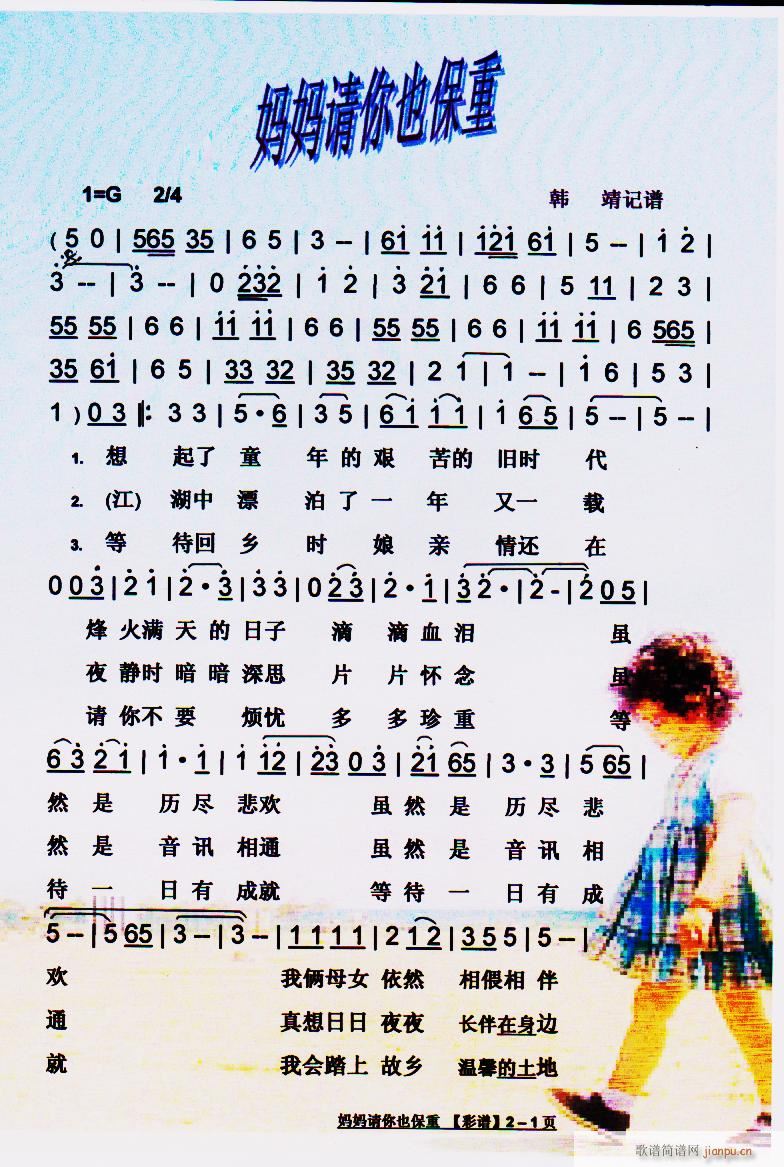 妈妈请你也保重
1=G 2/4 韩 靖记谱
( 5 0 | 565 35 | 6 5 | 3 -- | 61 11 | 121 61 | 5 -- | 1 2 |
3 -- | 3 -- | 0 232 | 1 2 | 3 21 | 6 6 | 5 11 | 2 3 |
55 55 | 6 6 | 11 11 | 6 6 | 55 55 | 6 6 | 11 11 | 6 565 |
35 61 | 6 5 | 33 32 | 35 32 | 2 1 | 1 -- | 1 6 | 5 3 |
1 ) 03 |: 3 3 | 5 · 6 | 3 5 | 61 11 | 1 65 | 5 -- | 5 -- |
1. 想 起了 童 年 的 艰 苦的 旧时 代
2. (江) 湖中 漂 泊 了 一 年 又一 载
3. 等 待回 乡 时 娘 亲 情还 在
0 03 | 2 1 | 2 · 3 | 3 3 | 0 23 | 2 · 1 | 3 2 · | 2 - | 2 05 |
烽 火满 天 的 日子 滴 滴 血 泪 虽
夜 静时 暗 暗 深思 片 片 怀 念 虽
请 你不 要 烦忧 多 多 珍 重 等
63 21 | 1 · 1 | 1 12 | 23 03 | 21 65 | 3 · 3 | 5 65 |
然 是 历 尽 悲欢 虽 然 是 历 尽 悲
然 是 音 讯 相通 虽 然 是 音 讯 相
待 一 日 有 成就 等 待 一 日 有 成
5 -- | 5 65 | 3 -- | 3 -- | 11 11 | 2 12 | 35 5 | 5 -- |
欢 我俩母女 依然 相偎相 伴
通 真想日日 夜夜 长伴在身边
就 我会踏上 故乡 温馨的土地
妈妈请你也保重 【彩谱】2－1页
歌谱简谱网 jianpu.cn